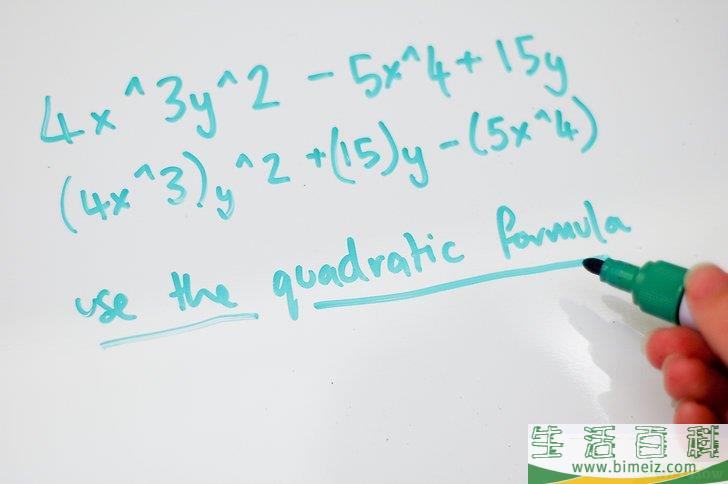 4x^3y^2 - 5x^4 + 15y
(4x^3)y^2 + (15)y - (5x^4)
use the quadratic formula
生活百科
www.bimeiz.com